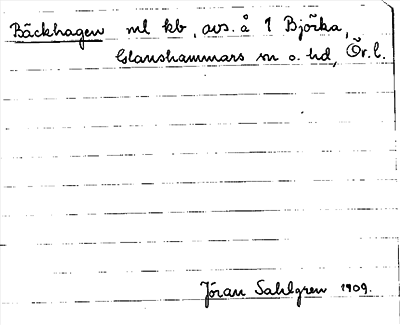 Bäckhagen ml kb, avs. å 1 Björka,
Glanshammars sn o. hd, Ör. l.
Jöran Sahlgren 1909.